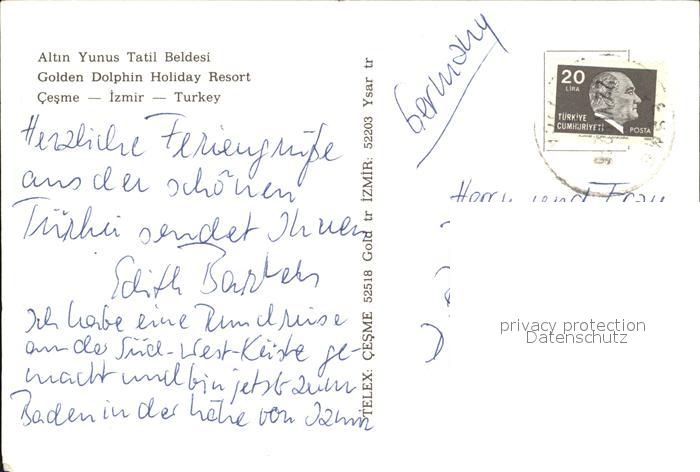 Altın Yunus Tatil Beldesi
Golden Dolphin Holiday Resort
Çeşme — İzmir — Turkey
Herzliche Feriengrüße
aus der schönen
Türkei sendet Ihnen
Edith
Ich habe eine Rundreise
an der Süd-West-Küste ge-
macht und bin jetzt zum
Baden in der Nähe von Izmir
TELEX: ÇEŞME 52518 Gold tr İZMİR: 52203 Ysar tr
Germany
20
LİRA
TÜRKİYE
CUMHURİYETİ
POSTA
Herrn und Frau
privacy protection
Datenschutz